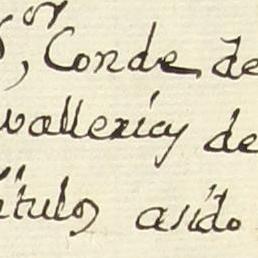 or
, Conde de
vallericy de
titulos asido